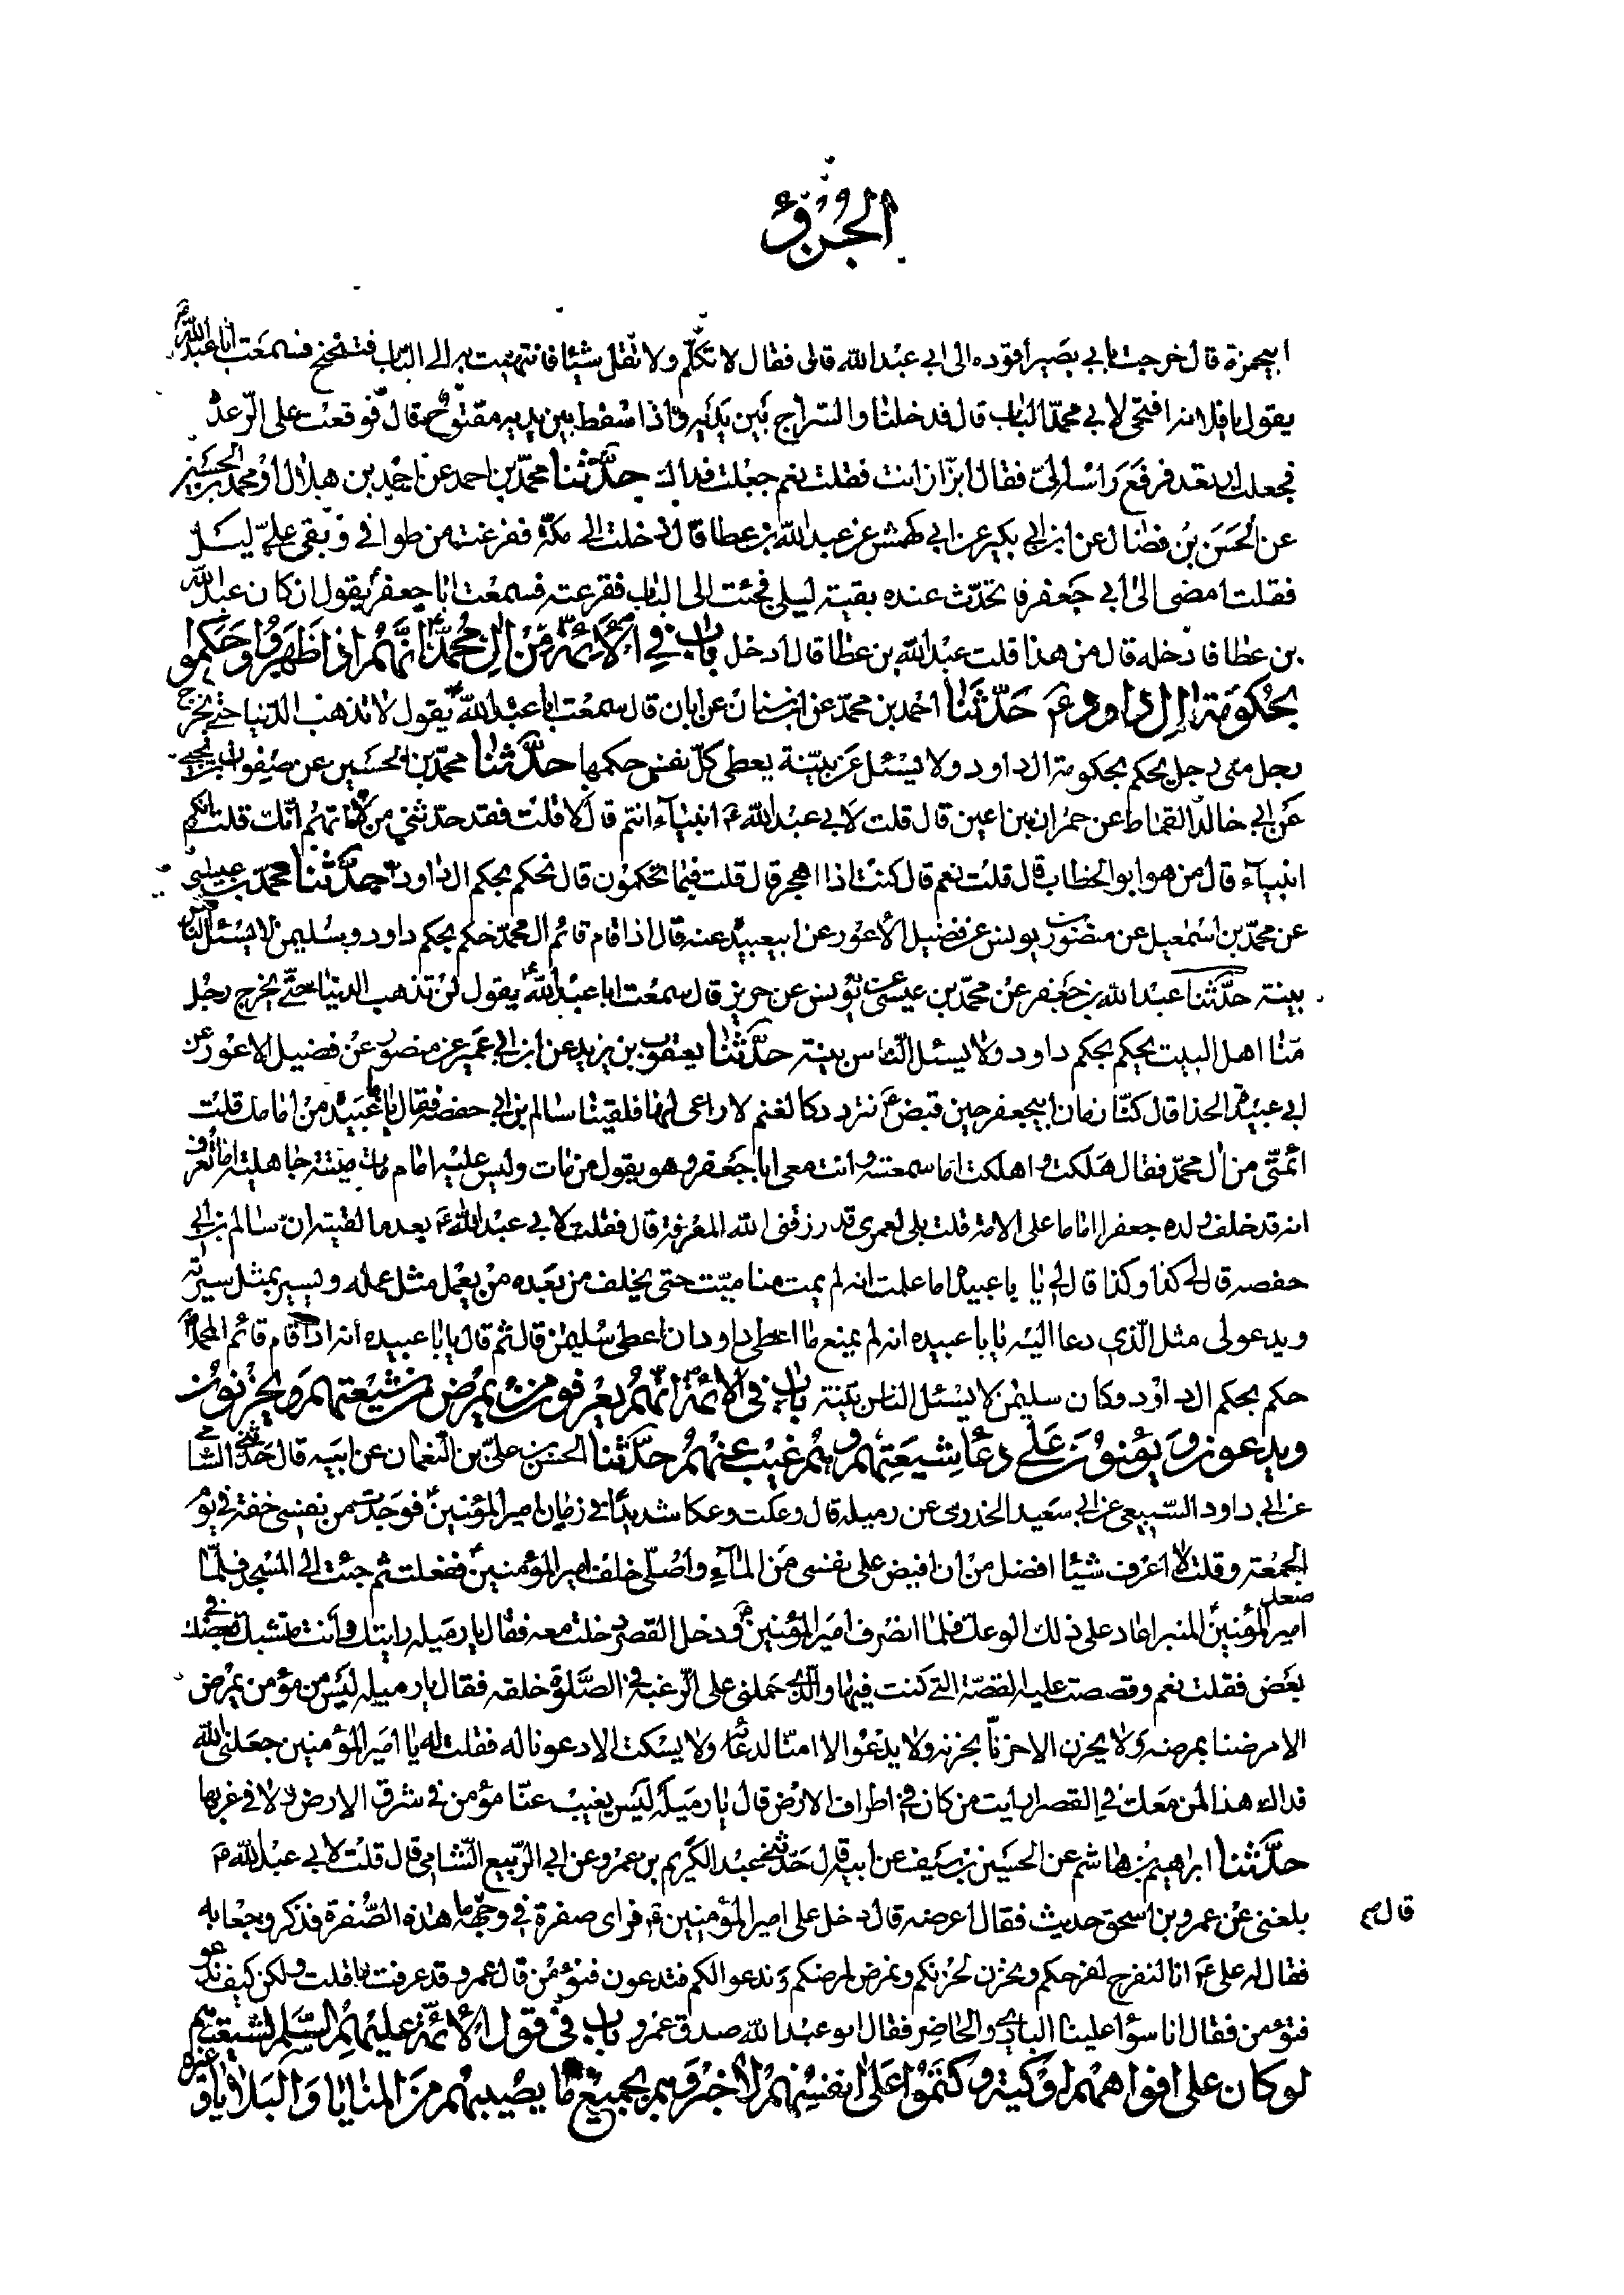 الجزؤ
ابيحمزة قال خرجت بابي بصير أقوده الى ابي عبد الله قال فقال لا تكلم ولا تقل شيئا فانتهيت به الى الباب فتنحنح فسمعت ابا عبد الله ع
يقول يا فلانه افتحى لابي محمد الباب قال فدخلنا والسراج بين يديه واذا سفط بين يديه مفتوح قال فوقعت على الرعدة
فجعلت ارتعد فرفع راسه الى فقال ابزاز انت فقلت نعم جعلت فداك حدثنا محمد بن احمد عن احمد بن هلال او محمد بن الحسين
عن الحسن بن فضال عن ابن ابي بكير عن ابي كهمش عن عبد الله بن عطا قال دخلت الى مكة ففرغت من طوافي وبقى على ليل
فقلت امضى الى أبي جعفر فاتحدث عنده بقية ليلي فجئت الى الباب فقرعته فسمعت ابا جعفر يقول ان كان عبد الله
بن عطا فادخله قال من هذا قلت عبد الله بن عطا قال ادخل باب في الائمة من ال محمد انهم اذا ظهروا وحكموا
بحكومة ال داود ع حدثنا احمد بن محمد عن ابن سنان عن ابان قال سمعت ابا عبد الله ع يقول لا تذهب الدنيا حتى يخرج
رجل منى رجل يحكم بحكومة ال داود ولا يسئل عن بينة يعطى كل نفس حكمها حدثنا محمد بن الحسين عن صفوان بن يحيى
عن ابي خالد القماط عن حمران بن اعين قال قلت لابي عبد الله ع انبيآء انتم قال لا قلت فقد حدثني من لا اتهم انك قلت انكم
انبيآء قال من هو ابو الخطاب قال قلت نعم قال كنت اذا اهجر قال قلت فبما تحكمون قال نحكم بحكم ال داود حدثنا محمد بن عيسى
عن محمد بن اسمعيل عن منصور بن يونس عن فضيل الأعور عن ابيعبيدة عنه قال اذا قام قائم ال محمد حكم بحكم داود وسليمن لا يسئل الناس
بينة حدثنا عبد الله بن جعفر عن محمد بن عيسى عن يونس عن حريز قال سمعت ابا عبد الله ع يقول لن تذهب الدنيا حتى يخرج رجل
منا اهل البيت يحكم بحكم داود ولا يسئل الناس بينة حدثنا يعقوب بن يزيد عن ابن ابي عمير عن منصور عن فضيل الاعور عن
ابي عبيدة الحذا قال كنا زمان ابيجعفر حين قبض ع نتردد كالغنم لا راعى لها فلقينا سالم بن ابي حفصه فقال يا با عبيدة من امامك قلت
ائمتى من ال محمد فقال هلكت واهلكت اما سمعت وانت معى ابا جعفر وهو يقول من مات وليس عليه امام مات ميتة جاهلية اما تعرف
انه قد خلف ولده جعفرا اماما على الامة قلت بلى لعمرى قد رزقنى الله المعرفة قال فقلت لابي عبد الله ع بعد ما لقيته ان سالم بن ابي
حفصه قال لى كذا وكذا قال لى يا با عبيدة اما علمت انه لم يمت منا ميت حتى يخلف من بعده من يعمل مثل عمله ويسير بمثل سيرته
ويدعو لى مثل الذي دعا اليه يا با عبيده انه لم يمنع ما اعطى داود ان اعطى سليمن قال ثم قال يا با عبيده انه اذا قام قائم ال محمد
حكم بحكم ال داود وكان سليمن لا يسئل الناس بينة باب في الائمة انهم يعرفون من يمرض من شيعتهم ويحزنون
ويدعون ويؤمنون على دعا شيعتهم وهم غيب عنهم حدثنا الحسن بن علي بن النعمان عن ابيه قال حدثنى الشامى
عن ابي داود السبيعى عن ابي سعيد الخدرى عن رميله قال وعكت وعكا شديدا في زمان امير المؤمنين فوجدت من نفسى خفة في يوم
الجمعة وقلت لا اعرف شيئا افضل من ان افيض على نفسى من المآء واصلى خلف امير المؤمنين ع ففعلت ثم جئت الى المسجد فلما
صعد
امير المؤمنين المنبر اعاد على ذلك الوعك فلما انصرف امير المؤمنين ع ودخل القصر دخلت معه فقال يا رميله رايتك وأنت متشبك بعضك في
بعض فقلت نعم وقصصت عليه القصة التي كنت فيها والذي حملنى على الرغبة في الصلوة خلقه فقال يا رميله ليس من مؤمن يمرض
الا مرضنا بمرضه ولا يحزن الا حزنا بحزنه ولا يدعو الا امنا لدعائه ولا يسكت الا دعونا له فقلت له يا امير المؤمنين جعلنى الله
فداك هذا لمن معك في القصر ارايت من كان في اطراف الارض قال يا رميلة ليس يغيب عنا مؤمن في شرق الارض ولا في غربها
حدثنا ابراهيم بن هاشم عن الحسين بن سيف عن ابيه قال حدثنى عبد الكريم بن عمرو عن ابي الربيع الشامى قال قلت لابي عبد الله ع
بلغنى عن عمرو بن اسحق حديث فقال اعرضه قال دخل على امير المؤمنين ع فراى صفرة في وجهه ما هذه الصفرة فذكر وجعا به
قال م
فقال له على ع انا لنفرح لفرحكم ونحزن لحزنكم ونمرض لمرضكم وندعوا لكم فتدعون فنؤمن قال عمرو قد عرفت ما قلت ولكن كيف ندعو
فتؤمن فقال انا سؤا علينا البادي والحاضر فقال ابو عبد الله صدق عمرو باب في قول الأئمة عليهم السلم لشيعتهم
لو كان على افواههم اوكية وكتموا على انفسهم لاخبروهم بجميع ما يصيبهم من المنايا والبلايا و غيره